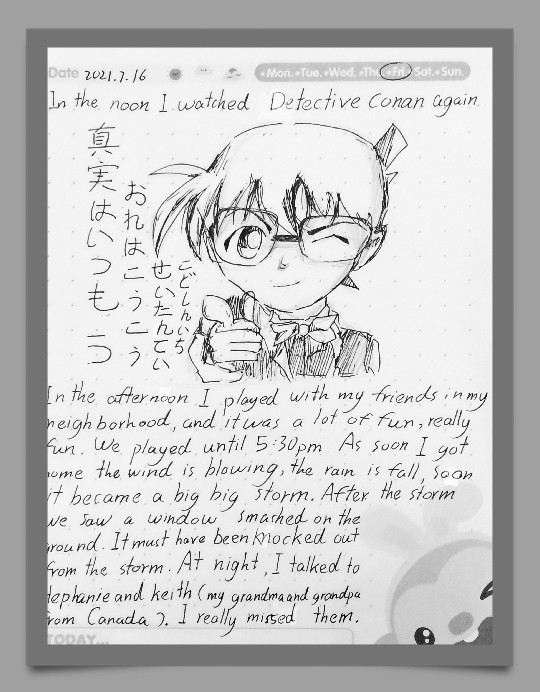 Date 2021.7.16
Mon. Tue. Wed. Thu Fri Sat. Sun.
In the noon I watched Detective Conan again.
真実はいつも一つ
おれはこうこう
せいたんてい
こどしんいち
In the afternoon I played with my friends in my
neighborhood, and it was a lot of fun, really
fun. We played until 5:30pm As soon I got
ome the wind is blowing, the rain is fall, soon
it became a big big storm. After the storm
we saw a window smashed on the
round. It must have been knocked out
from the storm. At night, I talked to
tephanie and keith (my grandma and grandpa
from Canada). I really missed them.
TODAY...